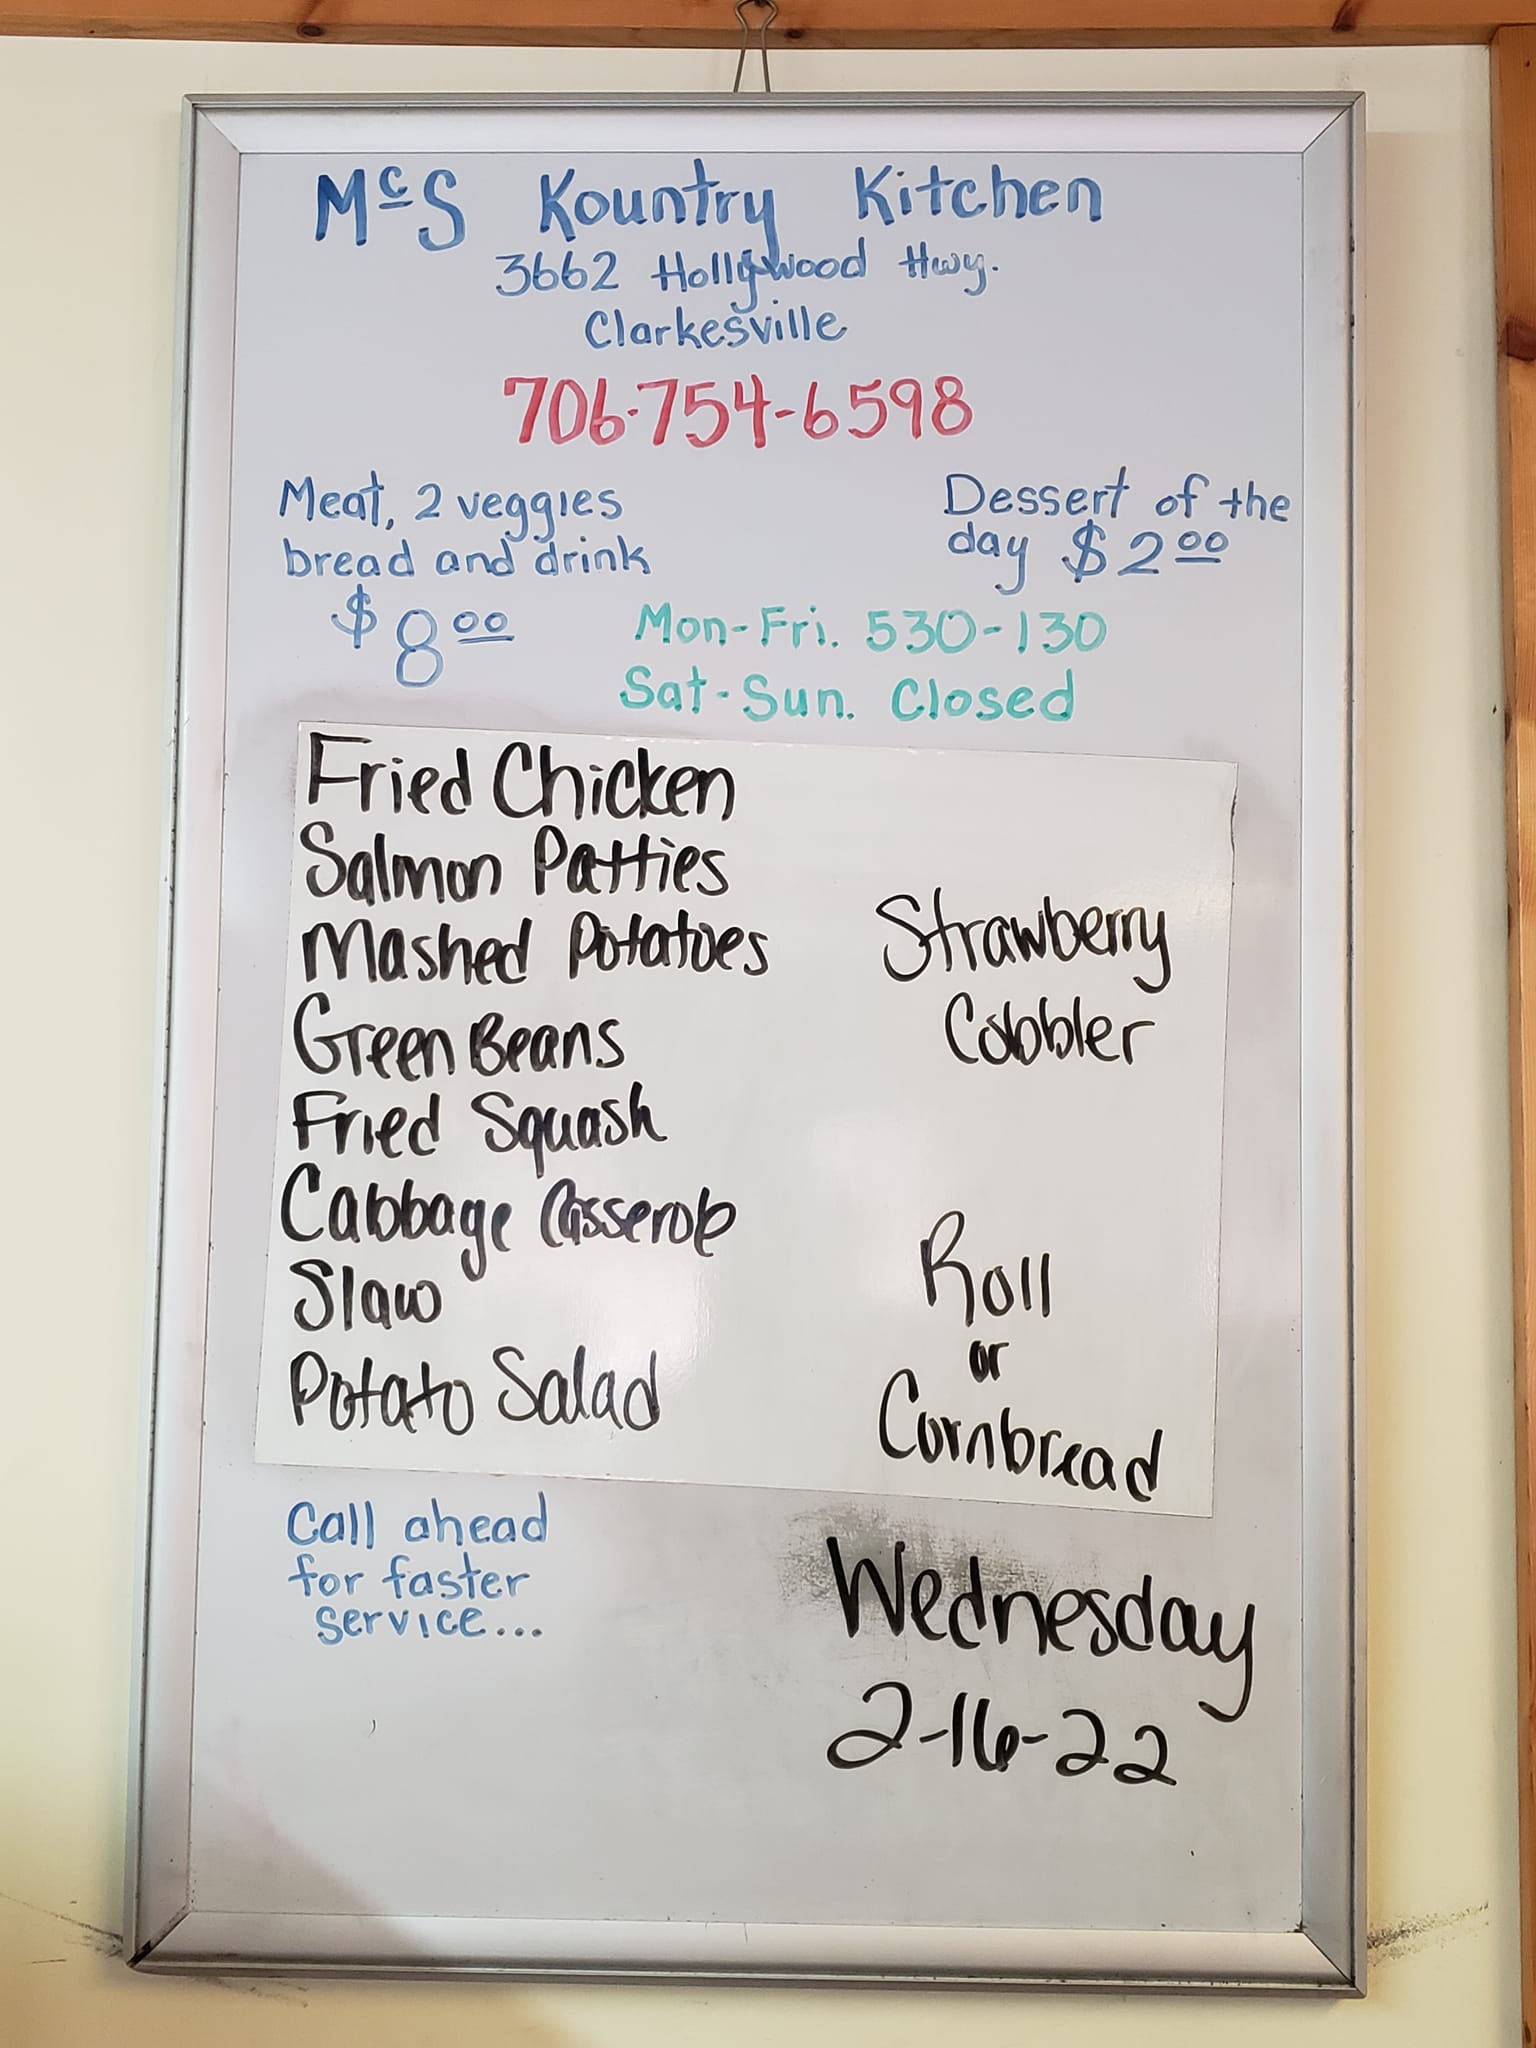 McS Kountry Kitchen
3662 Hollywood Hwy.
Clarkesville
706-754-6598
Meat, 2 veggies
bread and drink
$8.00
Dessert of the
day $2.00
Mon-Fri. 530-130
Sat-Sun. Closed
Fried Chicken
Salmon Patties
Mashed Potatoes
Green Beans
Fried Squash
Cabbage Casserole
Slaw
Potato Salad
Strawberry
Cobbler
Roll
or
Cornbread
Call ahead
for faster
service...
Wednesday
2-16-22